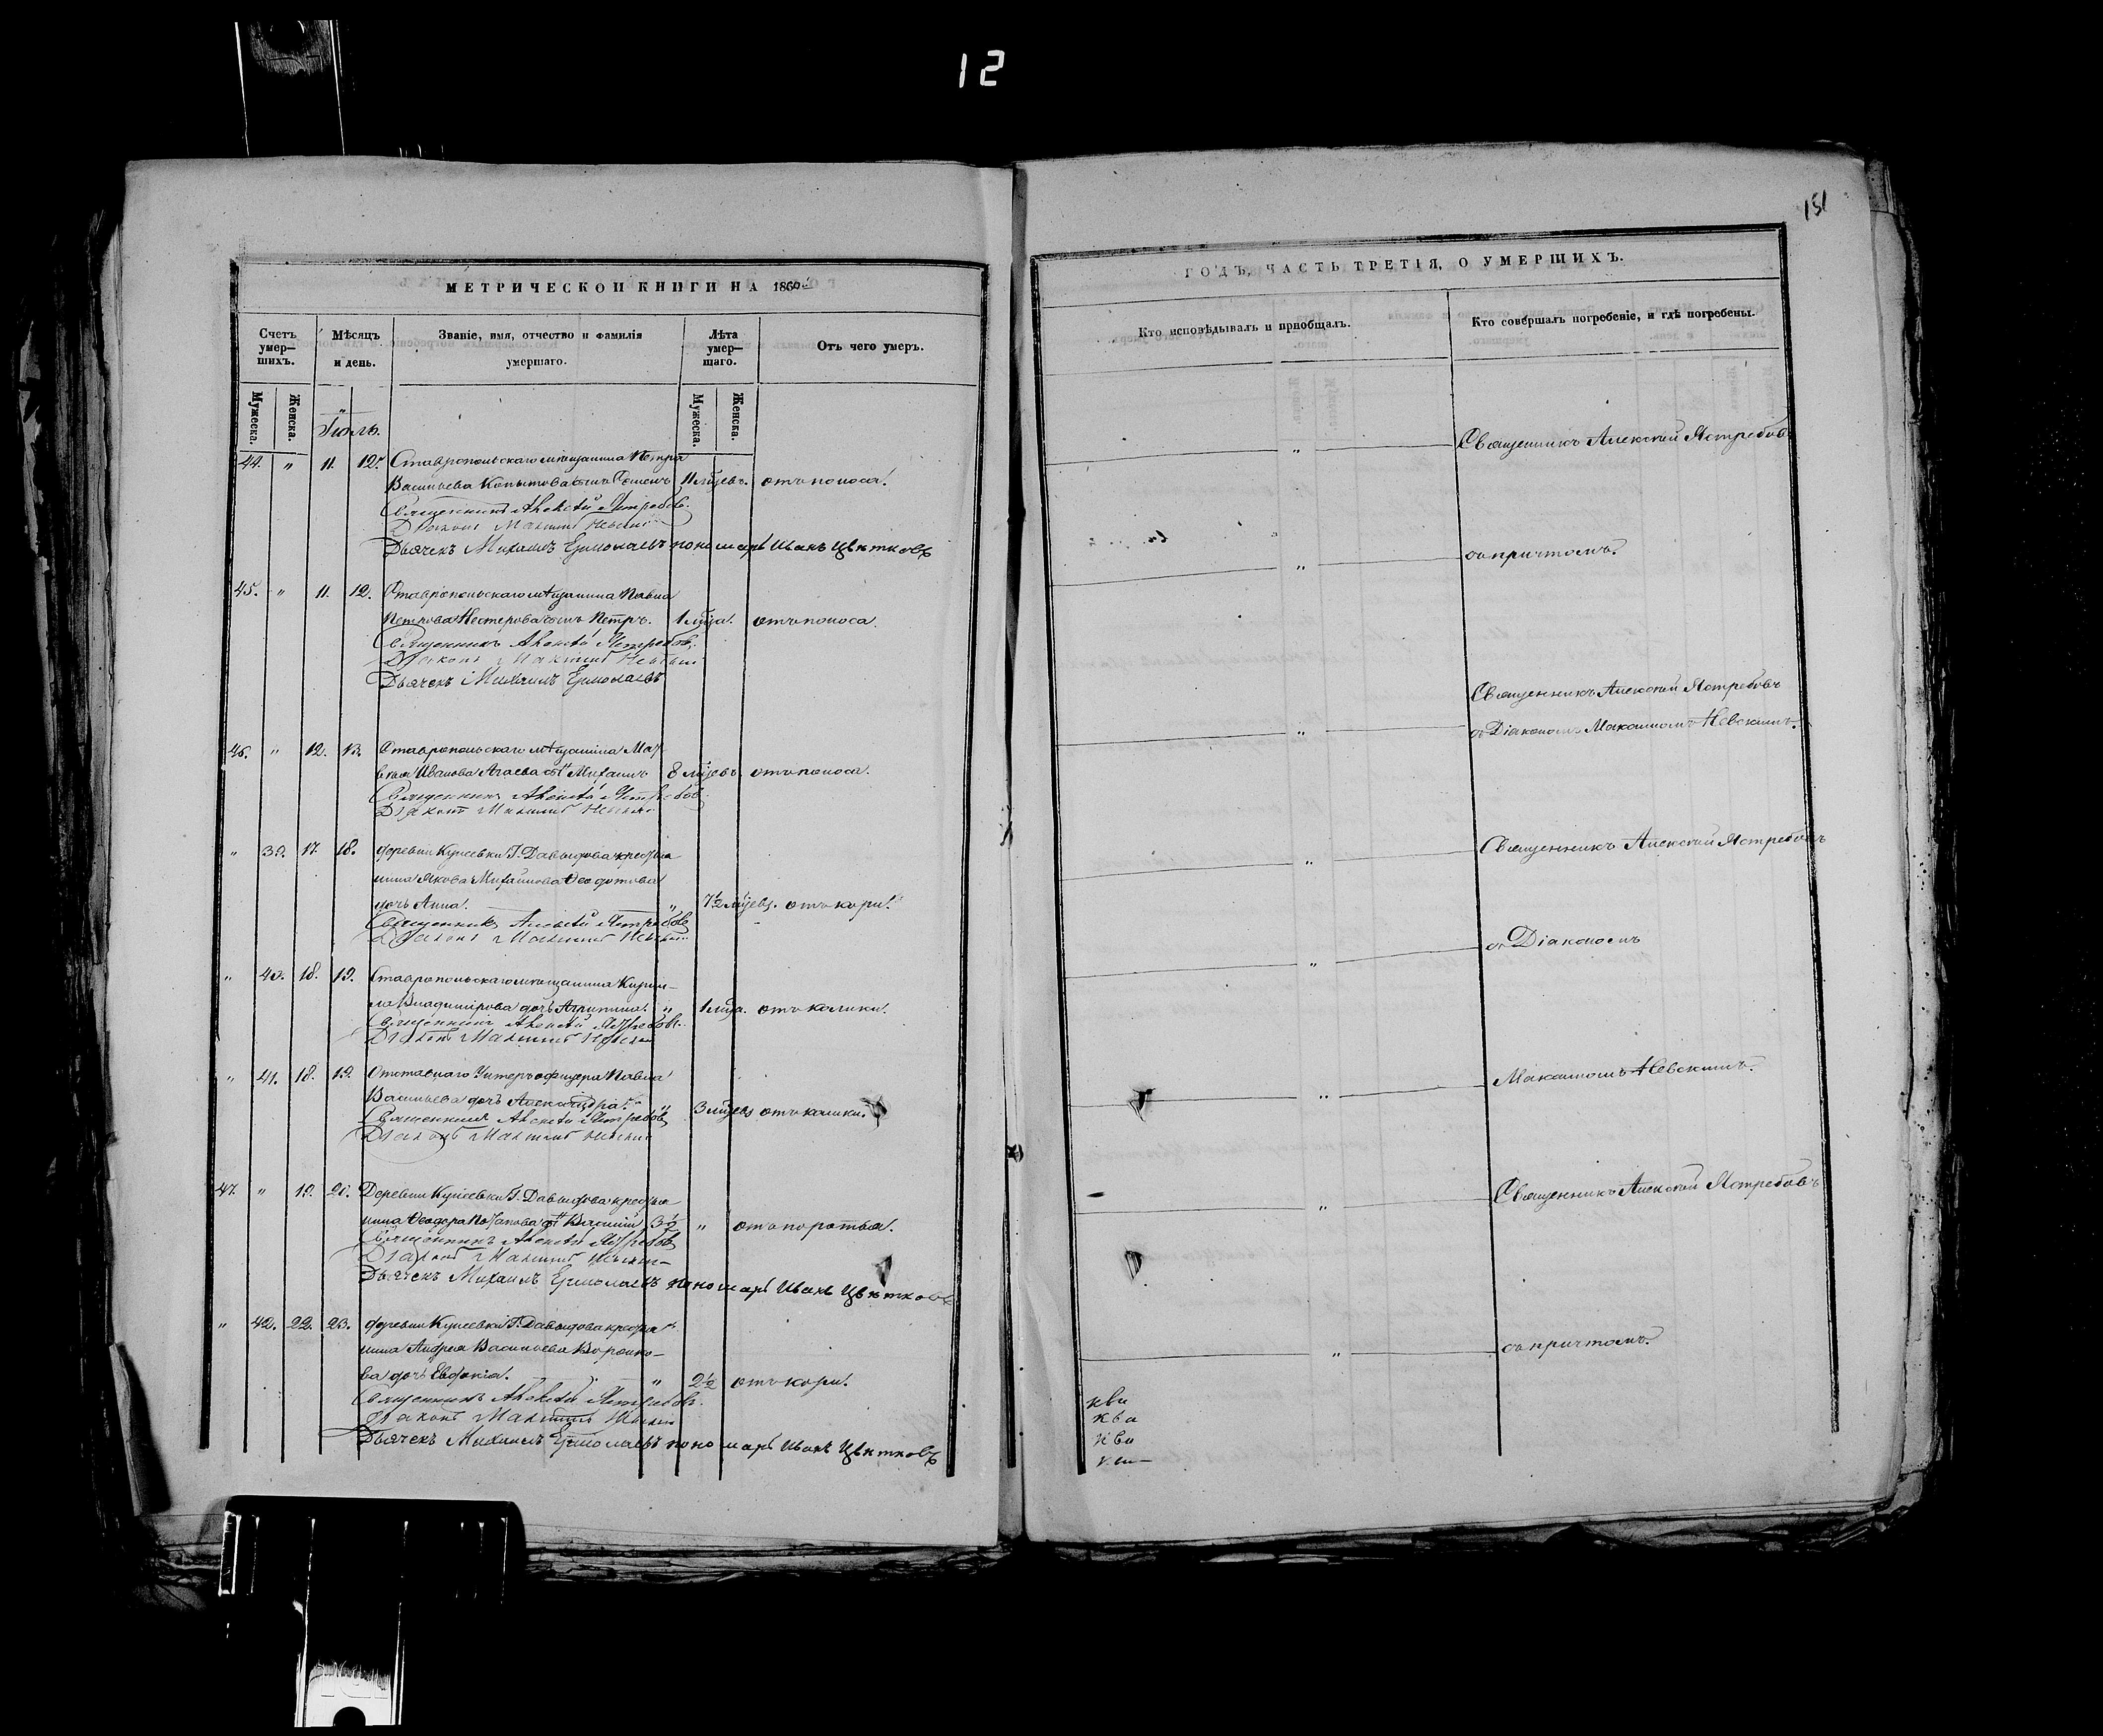 12
151
МЕТРИЧЕСКОЙ КНИГИ НА 1860
Счетъ умер-шихъ.
Мѣсяцъ и день.
Званіе, имя, отчество и фамилія умершаго.
Лѣта умер-шаго.
Отъ чего умеръ.
Мужеска. Женска.
Мужеска. Женска.
Іюль.
44. " 11. 12. Ставропольскаго мѣщанина Петра
Васильева Копытова сынъ 11 мѣсѣцевъ. отъ поноса.
Священникъ Алексѣй Ястребовъ.
Діаконъ Максимъ Невскій
Дьячекъ Михаилъ Ермолаевъ пономарь Иванъ Цвѣтковъ
45. " 11. 12. Ставропольскаго мѣщанина Павла
Петрова Нестерова сынъ Петръ. 1 мѣсяца. отъ поноса.
Священникъ Алексѣй Ястребовъ.
Діаконъ Максимъ Невскій
Дьячекъ Михаилъ Ермолаевъ
46. " 12. 13. Ставропольскаго мѣщанина
Иванова Агаева сынъ Михаилъ 8 мѣсяцевъ отъ поноса.
Священникъ Алексѣй Ястребовъ
Діаконъ Максимъ Невскій
" 39. 17. 18. деревни Кунеевки Г. Давыдова крестья
нина Якова Михайлова Ѳедотова
дочь Анна. " 7½ мѣсяцевъ. отъ кори.
Священникъ Алексѣй Ястребовъ
Діаконъ Максимъ Невскій
" 40. 18. 19. Ставропольскаго мѣщанина Кирил-
ла Владимірова дочь Агрипина. " 1 мѣсяца. отъ колики.
Священникъ Алексѣй Ястребовъ.
Діаконъ Максимъ Невскій
" 41. 18. 19. Отставнаго Унтеръ офицера Павла
Васильева дочь Александра. " 3 мѣсяцевъ отъ колики.
Священникъ Алексѣй Ястребовъ
Діаконъ Максимъ Невскій
47. " 19. 20. Деревни Кунеевки Г. Давыдова крестья
нина Ѳеодора Потапова сынъ Василій 3½ " отъ
Священникъ Алексѣй Ястребовъ
Діаконъ Максимъ Невскій
Дьячекъ Михаилъ Ермолаевъ пономарь Иванъ Цвѣтковъ
" 42. 22. 23. деревни Кунеевки Г. Давыдова крестья
нина Андрея Васильева Воронко-
ва дочь Евдокія. " 2½ отъ кори.
Священникъ Алексѣй Ястребовъ.
Діаконъ Максимъ Невскій
Дьячекъ Михаилъ Ермолаевъ пономарь Иванъ Цвѣтковъ
ГОДЪ, ЧАСТЬ ТРЕТІЯ, О УМЕРШИХЪ.
Кто исповѣдывалъ и пріобщалъ.
Кто совершалъ погребеніе, и гдѣ погребены.
" Священникъ Алексѣй Ястребовъ
" съ причтомъ.
Священникъ Алексѣй Ястребовъ
" съ Діакономъ Максимомъ Невскимъ.
" Священникъ Алексѣй Ястребовъ
" съ Діакономъ
" Максимомъ Невскимъ.
" Священникъ Алексѣй Ястребовъ
" съ причтомъ.